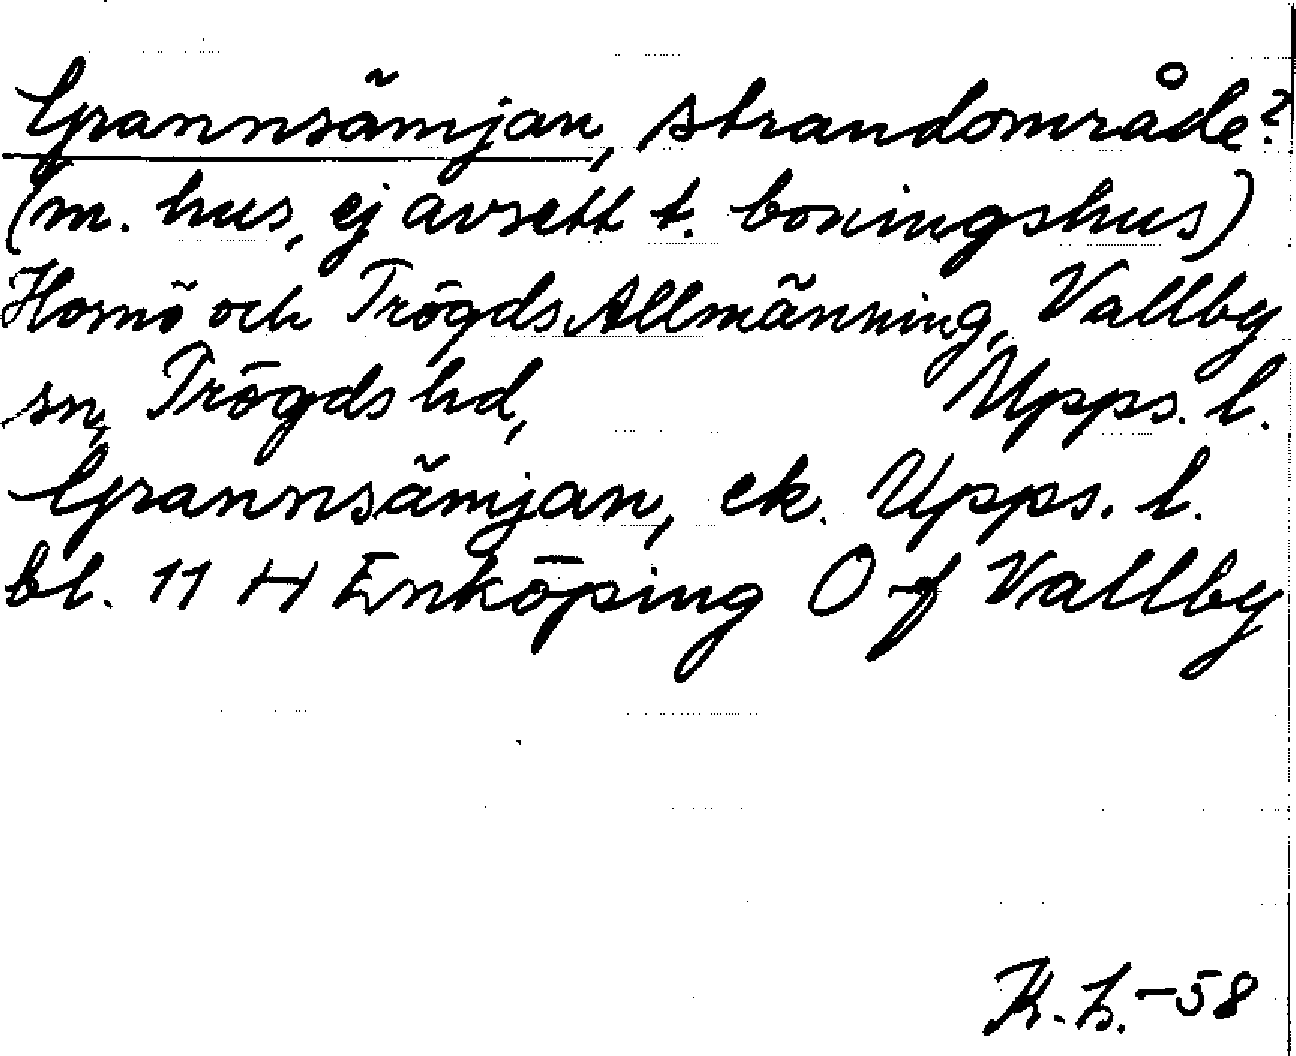 Grannsämjan, strandområde?
(m. hus, ej avsett t. boningshus)
Hornö och Trögds Allmänning, Vallby
sn, Trögds hd, Upps. l.
Grannsämjan, ek. Upps. l.
bl. 11 H Enköping O f Vallby
K. L. -58